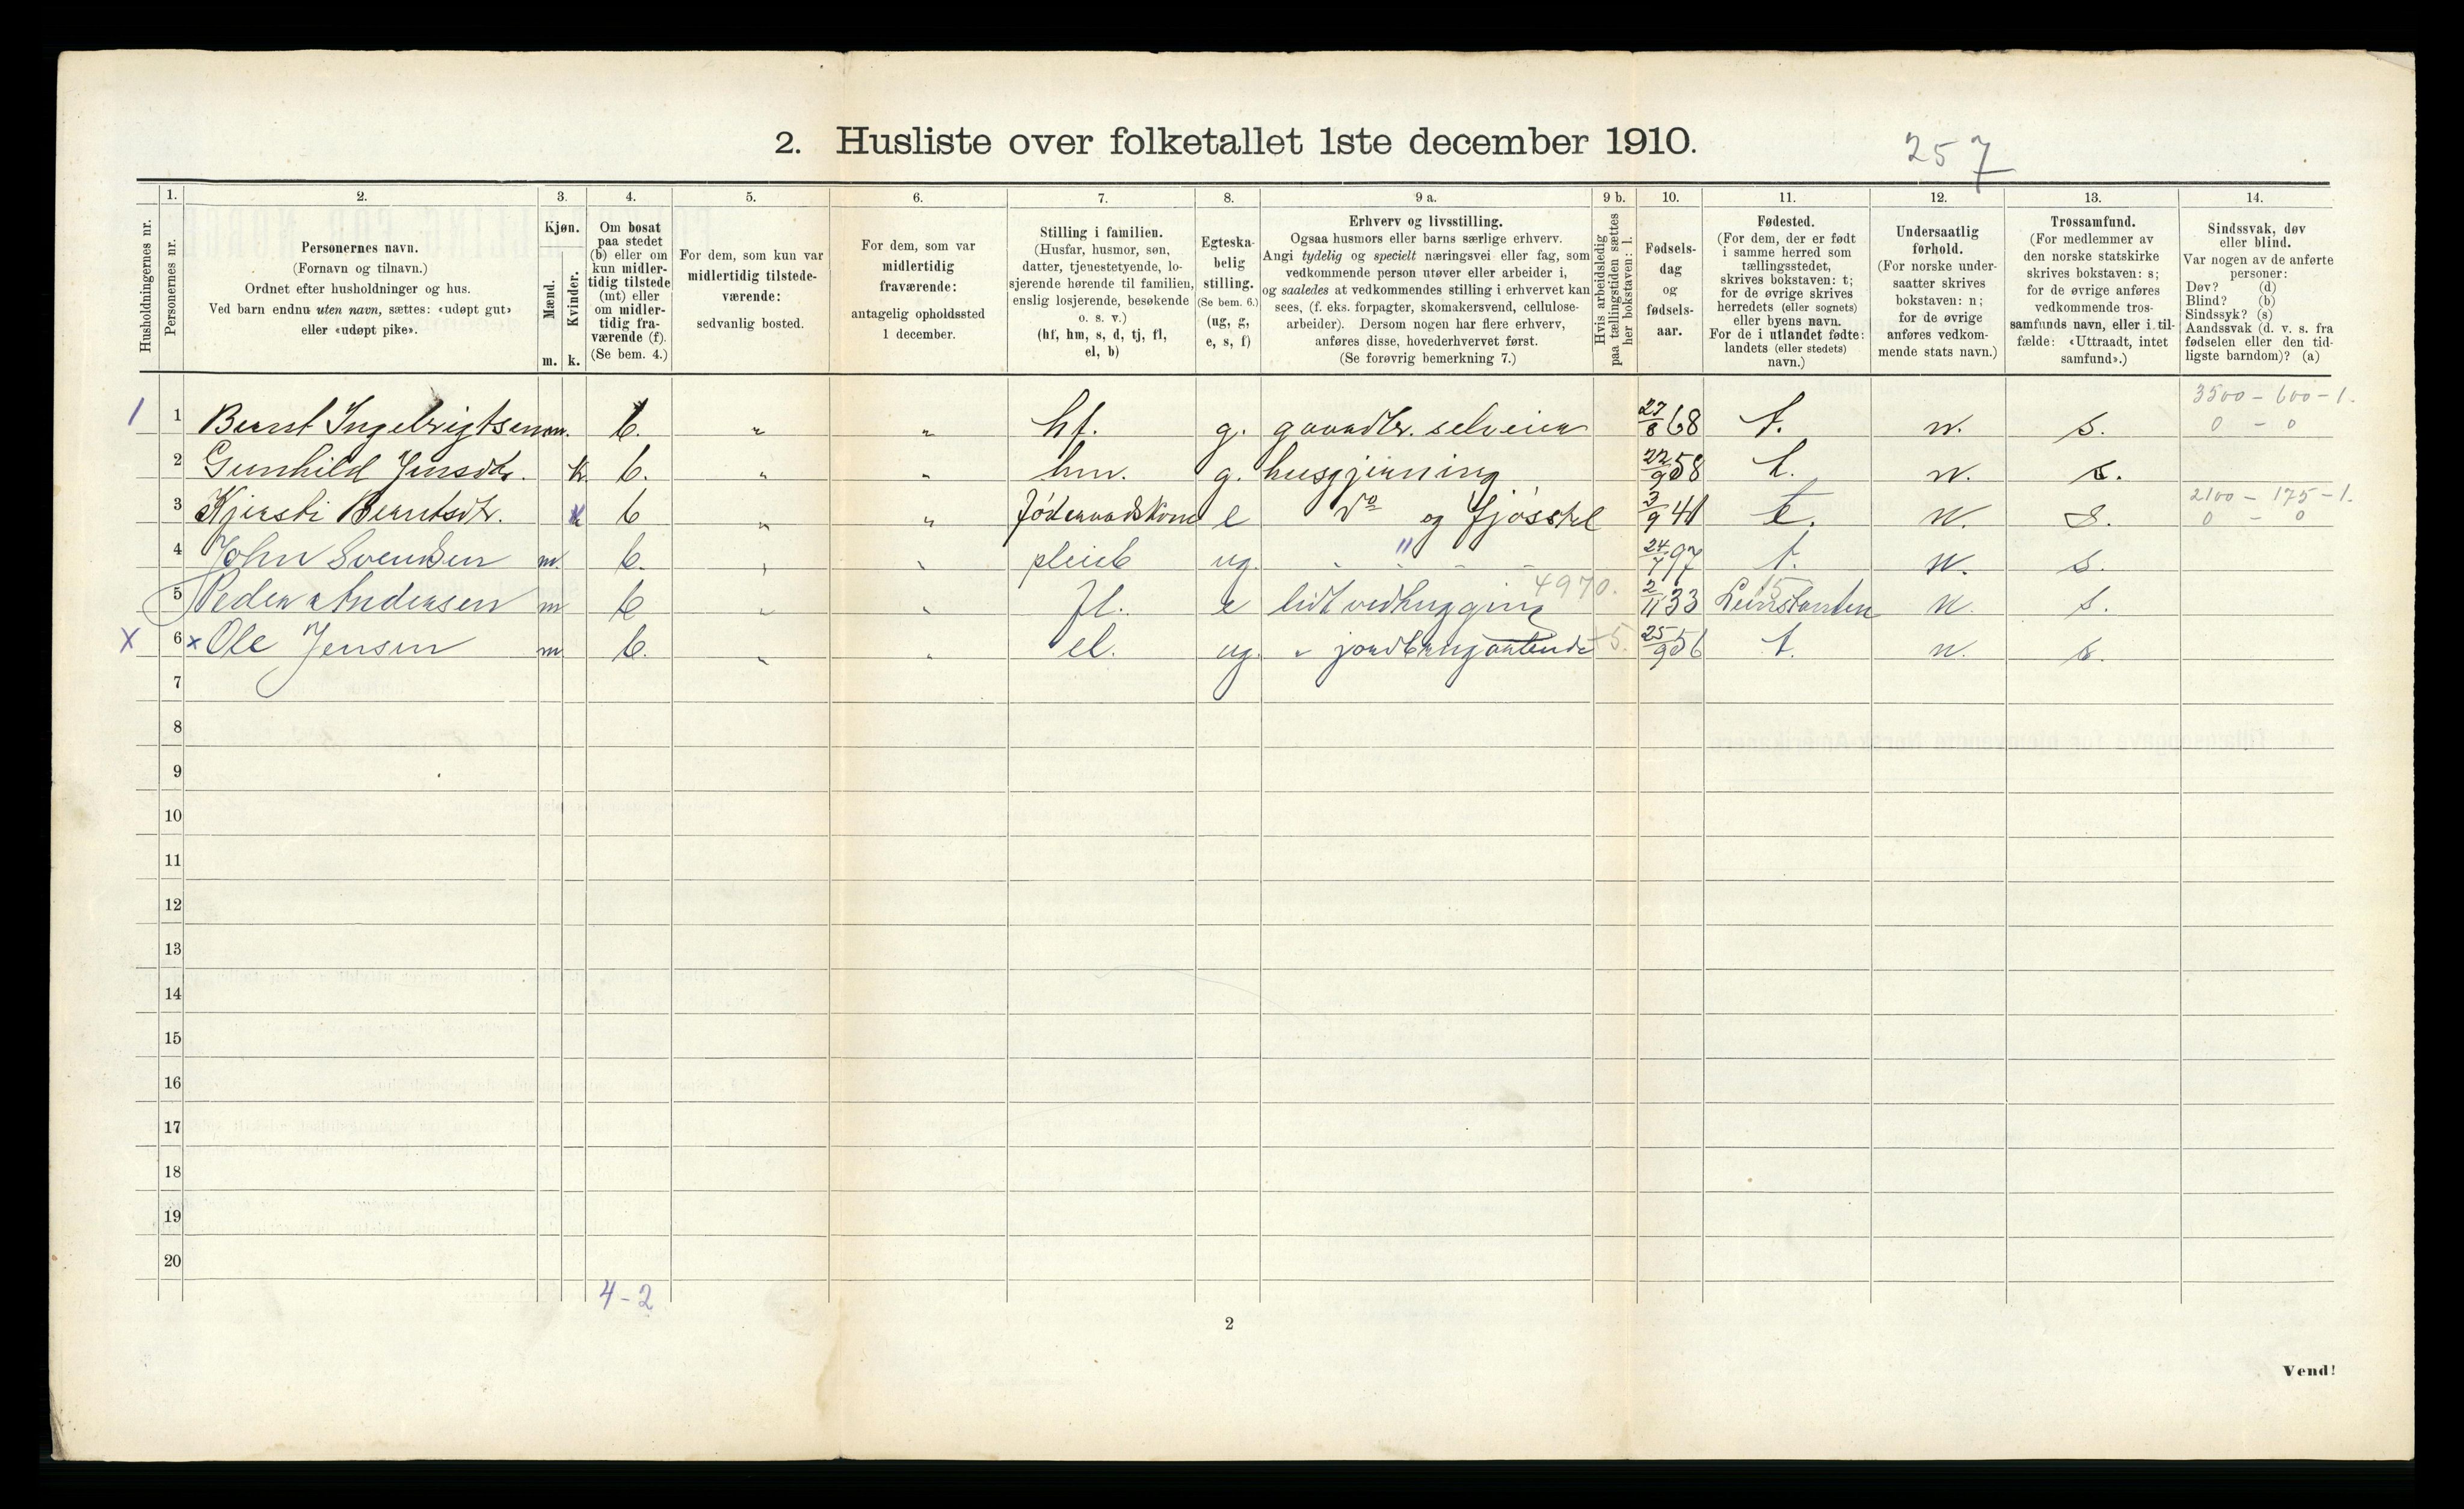 2. Husliste over folketallet 1ste december 1910.
257
1. 2. 3. 4. 5. 6. 7. 8. 9 a. 9 b. 10. 11. 12. 13. 14.
Husholdningernes nr.
Personernes nr.
Personernes navn.
(Fornavn og tilnavn.)
Ordnet efter husholdninger og hus.
Ved barn endnu uten navn, sættes: «udøpt gut»
eller «udøpt pike».
Kjøn.
Mænd.
Kvinder.
m. k.
Om bosat
paa stedet
(b) eller om
kun midler-
tidig tilstede
(mt) eller
om midler-
tidig fra-
værende (f).
(Se bem. 4.)
For dem, som kun var
midlertidig tilstede-
værende:
sedvanlig bosted.
For dem, som var
midlertidig
fraværende:
antagelig opholdssted
1 december.
Stilling i familien.
(Husfar, husmor, søn,
datter, tjenestetyende, lo-
sjerende hørende til familien,
enslig losjerende, besøkende
o. s. v.)
(hf, hm, s, d, tj, fl,
el, b)
Egteska-
belig
stilling.
(Se bem. 6.)
(ug, g,
e, s, f)
Erhverv og livsstilling.
Ogsaa husmors eller barns særlige erhverv.
Angi tydelig og specielt næringsvei eller fag, som
vedkommende person utøver eller arbeider i,
og saaledes at vedkommendes stilling i erhvervet kan
sees, (f. eks. forpagter, skomakersvend, cellulose-
arbeider). Dersom nogen har flere erhverv,
anføres disse, hovederhvervet først.
(Se forøvrig bemerkning 7.)
Hvis arbeidsledig
paa tællingstiden sættes
her bokstaven: l.
Fødsels-
dag
og
fødsels-
aar.
Fødested.
(For dem, der er født
i samme herred som
tællingsstedet,
skrives bokstaven: t;
for de øvrige skrives
herredets (eller sognets)
eller byens navn.
For de i utlandet fødte:
landets (eller stedets)
navn.)
Undersaatlig
forhold.
(For norske under-
saatter skrives
bokstaven: n;
for de øvrige
anføres vedkom-
mende stats navn.)
Trossamfund.
(For medlemmer av
den norske statskirke
skrives bokstaven: s;
for de øvrige anføres
vedkommende tros-
samfunds navn, eller i til-
fælde: «Uttraadt, intet
samfund».)
Sindssvak, døv
eller blind.
Var nogen av de anførte
personer:
Døv? (d)
Blind? (b)
Sindssyk? (s)
Aandssvak (d. v. s. fra
fødselen eller den tid-
ligste barndom)? (a)
3500 - 600 - 1.
1 1 Bernt Ingebrigtsen m. b. " " hf. g. gaardbr. selveier 27/8 68 t. n. s. 0 - 0
2 Gunhild Jensdtr. k. b. " " hm. g. husgjerning 22/9 58 t. n. s.
2100 - 175 - 1.
3 Kjersti Berntsdtr. k b " " føderaadskone e do og fjøsstel 3/9 41 t. n. s. 0 - 0
4 John Svendsen m. b. " " pleieb ug. " 24/7 97 t. n. s.
4970. 15
5 Peder Andersen m b " " fl. e lidt vedhugging 2/11 33 Leinstranden n. s.
X 6 x Ole Jensen m b. " " el. ug. " jordbrugsarbeide 25/9 56 t. n. s.
7
8
9
10
11
12
13
14
15
16
17
18
19
20
4 - 2
2
Vend!